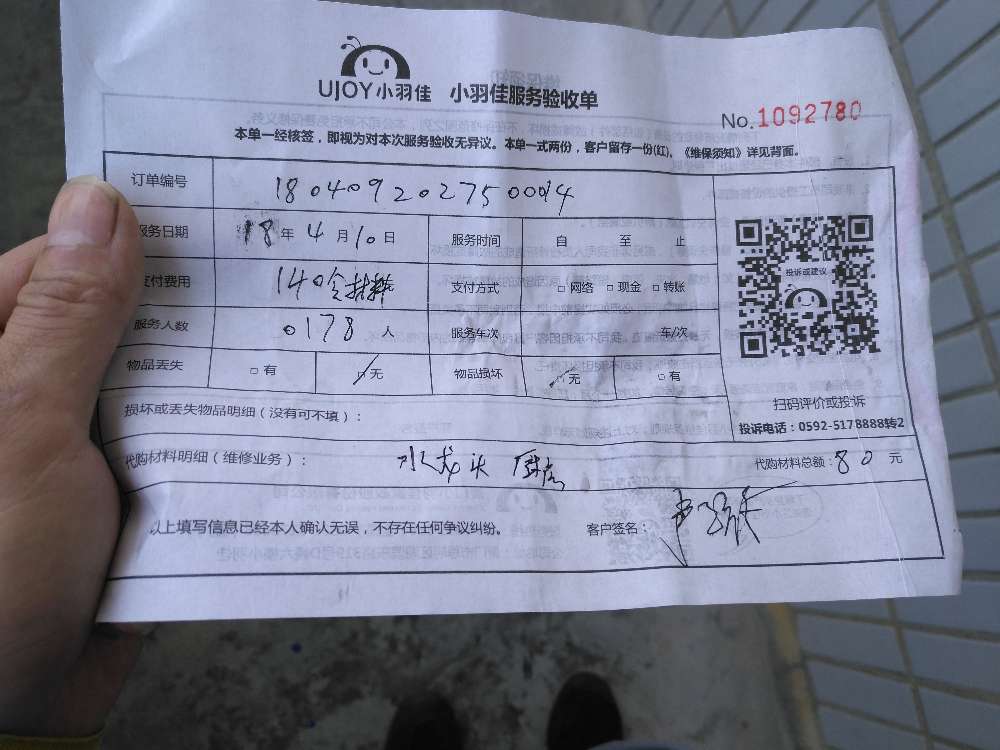 UJOY小羽佳 小羽佳服务验收单
No.1092780
本单一经核签，即视为对本次服务验收无异议。本单一式两份，客户留存一份(红)。《维保须知》详见背面。
订单编号 1804092027500094
服务日期 18年4月10日 服务时间 自 至 止
支付费用 140含材料 支付方式 □网络 □现金 □转账
投诉或建议
服务人数 0178人 服务车次 车/次
物品丢失 □有 □无 物品损坏 □无 □有
扫码评价或投诉
损坏或丢失物品明细（没有可不填）：
投诉电话：0592-5178888转2
代购材料明细（维修业务）： 水龙头 厨房 代购材料总额：80元
以上填写信息已经本人确认无误，不存在任何争议纠纷。 客户签名：